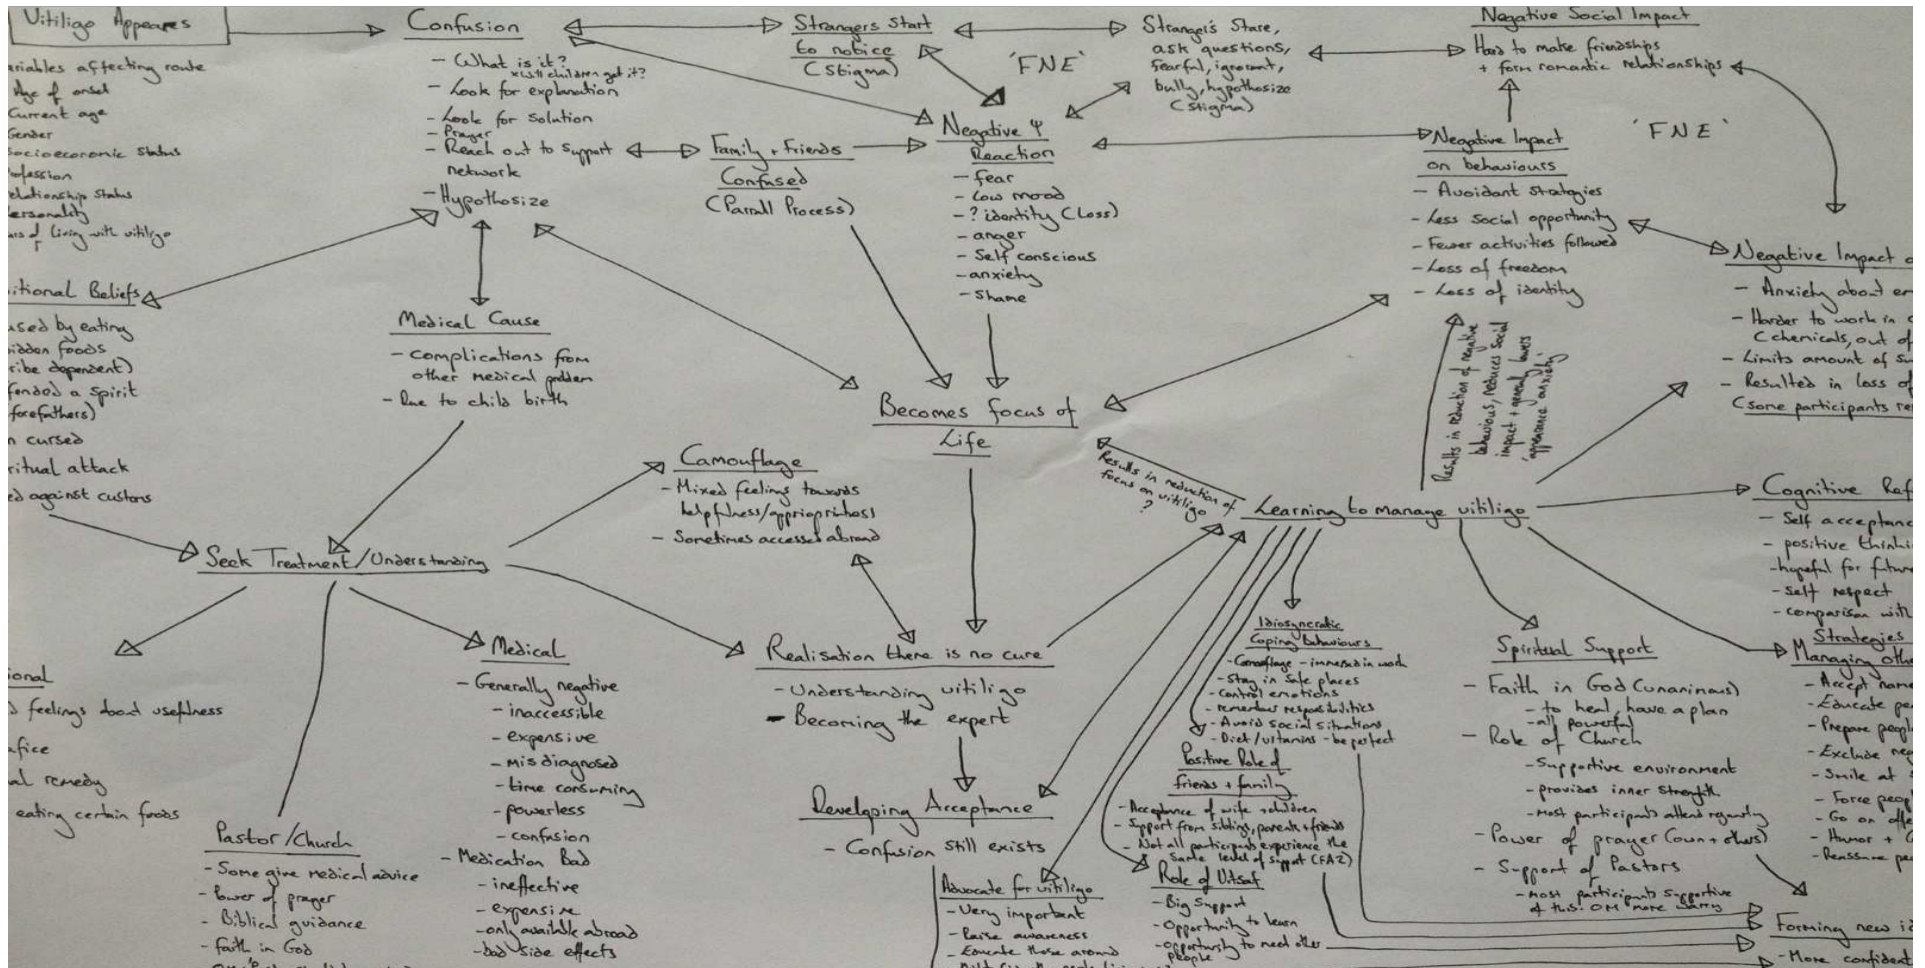 Vitiligo Appeares
variables affecting route
Age of onset
Current age
Gender
Socioeconomic Status
profession
relationship status
personality
of living with vitiligo
Confusion
- What is it?
* will children get it?
- Look for explanation
- Look for solution
- Prayer
- Reach out to support
network
- Hypothosize
Strangers Start
to notice
(Stigma)
Strangers Stare,
ask questions,
fearful, ignorant,
bully, hypothosize
(Stigma)
'FNE'
Negative Social Impact
Hard to make friendships
+ form romantic relationships
Family + Friends
Confused
(Parrall Process)
Negative Ψ
Reaction
- fear
- Low mood
- ? identity (Loss)
- anger
- Self conscious
- anxiety
- Shame
Negative Impact
on behaviours
- Avoidant strategies
- Less social opportunity
- Fewer activities followed
- Loss of freedom
- Loss of identity
'FNE'
Negative Impact
- Anxiety about
- Harder to work in
(chemicals, out of
- Limits amount of
- Resulted in loss of
(some participants
itional Beliefs
used by eating
idden foods
ribe dependent)
fended a spirit
(forefathers)
n cursed
ritual attack
ed against customs
Medical Cause
- complications from
other medical problem
- Due to child birth
Becomes focus of
Life
Results in reduction of
focus on vitiligo
?
Results in reduction of negative
behaviours, reduces social
impact + generally lowers
'appearance anxiety'
Camouflage
- Mixed feelings towards
helpfulness/appriopritness
- Sometimes accessed abroad
Learning to manage vitiligo
Cognitive Ref
- Self acceptanc
- positive thinki
- hopeful for future
- Self respect
- comparison with
Seek Treatment/Understanding
ional
feelings about usefulness
fice
al remedy
eating certain foods
Pastor/Church
- Some give medical advice
- Power of prayer
- Biblical guidance
- faith in God
Medical
- Generally negative
- inaccessible
- expensive
- misdiagnosed
- time consuming
- powerless
- confusion
- Medication Bad
- ineffective
- expensive
- only available abroad
- bad side effects
Realisation there is no cure
- Understanding vitiligo
- Becoming the expert
Developing Acceptance
- Confusion still exists
Advocate for vitiligo
- Very important
- Raise awareness
- Educate those around
Idiosyncratic
Coping Behaviours
- Camouflage - immersed in work
- Stay in Safe places
- Control emotions
- remember responsibilities
- Avoid social situations
- Diet/vitamins - be perfect
Positive Role of
friends + family
- Acceptance of wife + children
- Support from sibling, parents + friends
- Not all participants experience the
same level of support (FA2)
Role of Vitsaf
- Big Support
- Opportunity to learn
- opportunity to meet other
people
Spiritual Support
- Faith in God (unanimous)
- to heal, have a plan
- all powerful
- Role of Church
- Supportive environment
- provides inner strength
- Most participants attend regularly
- Power of prayer (own + others)
- Support of Pastors
- Most participants supportive
of this. OM more warry
Strategies
Managing othe
- Accept
- Educate pe
- Prepare peopl
- Exclude neg
- Smile at
- Force peop
- Go on offe
- Humor +
- Reassure pe
Forming new id
- More confident